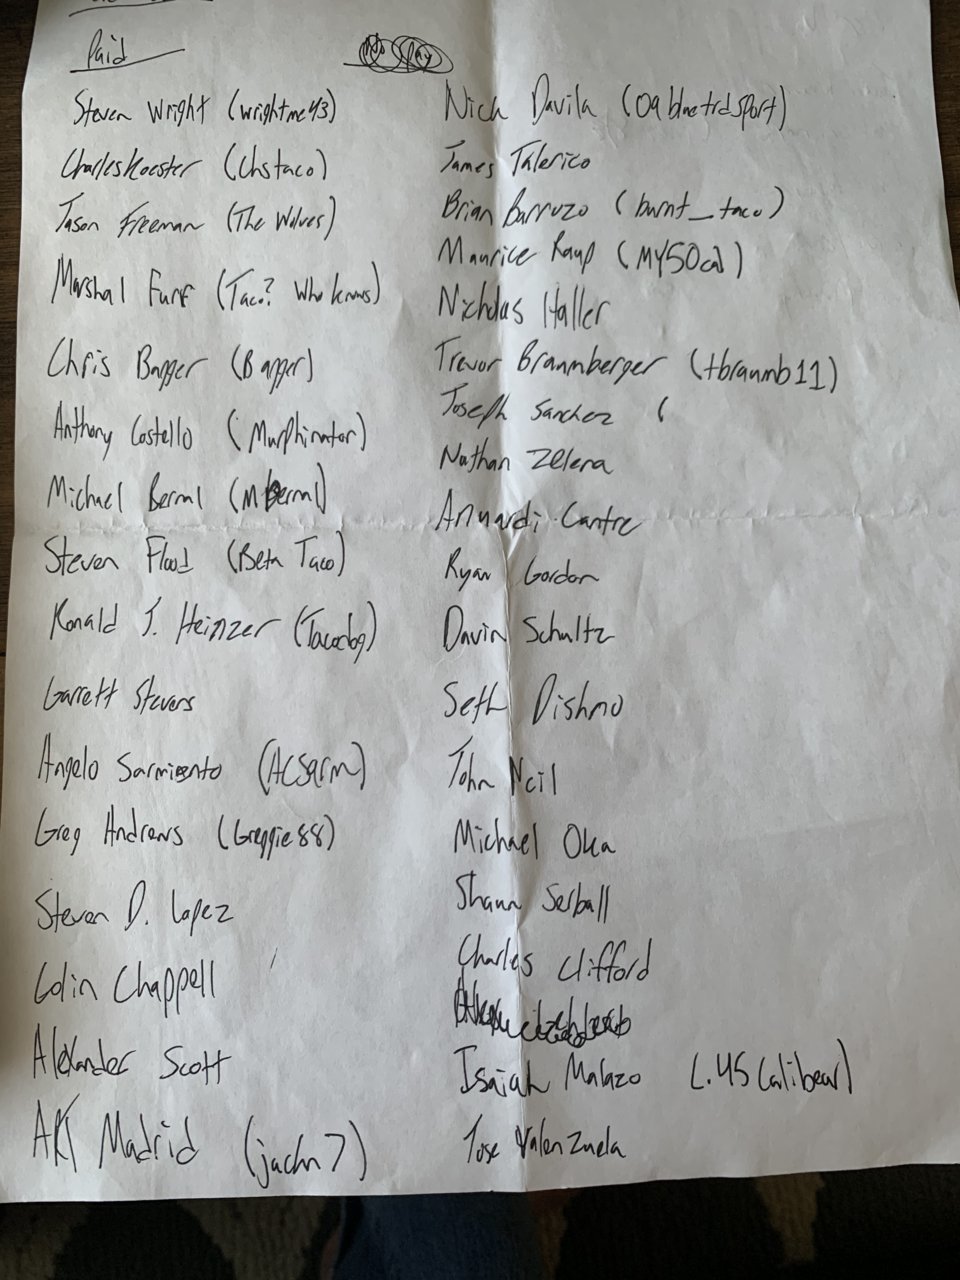 Paid
No Pay
Steven Wright (wrightme43)
Charles Koester (Chstaco)
Jason Freeman (The Wolves)
Marshal Furf (Taco? Who knows)
Chris Bagger (Bagger)
Anthony Costello (Murphinator)
Michael Bernal (MBernal)
Steven Flood (Beta Taco)
Ronald J. Heinzer (Tacodog)
Garrett Stevens
Angelo Sarmiento (ACSarm)
Greg Andrews (Greggie88)
Steven D. Lopez
Colin Chappell
Alexander Scott
AKI Madrid (jachn7)
Nick Davila (09bluetrdsport)
James Talerico
Brian Barruzo (burnt_taco)
Maurice Raup (MY50cal)
Nicholas Haller
Trevor Braumberger (tbraumb11)
Joseph Sanchez (
Nathan Zelena
Cantre
Ryan Gordon
Davin Schultz
Seth Dishmo
John Neil
Michael Oka
Shaun Serball
Charles Clifford
Isaiah Malazo (.45 Calibear)
Jose Valenzuela